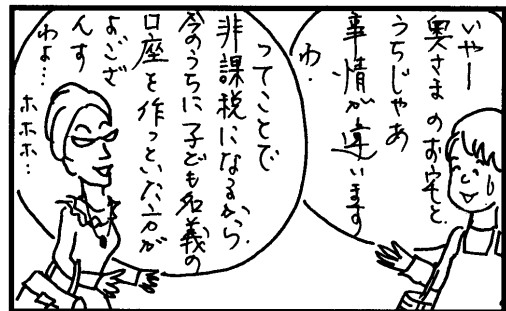 いやー
奥さまのお宅と
うちじゃあ
事情が違います
わ.
ってことで
非課税になるから.
今のうちに子ども名義の
口座を作っといた方が
よござ
んす
わよ…
ホホホ…